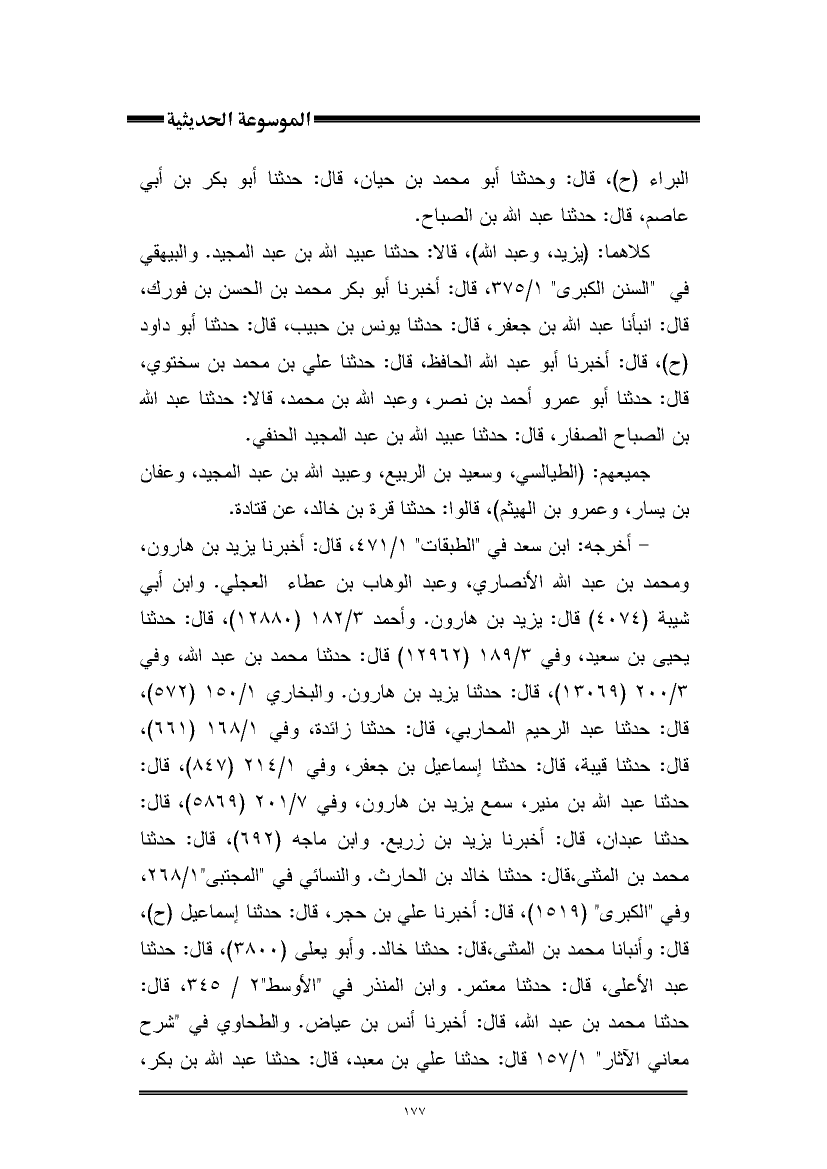 الموسوعة الحديثية
البراء (ح)، قال: وحدثنا أبو محمد بن حيان، قال: حدثنا أبو بكر بن أبي
عاصم، قال: حدثنا عبد الله بن الصباح.
كلاهما: (يزيد، وعبد الله)، قالا: حدثنا عبيد الله بن عبد المجيد. والبيهقي
في "السنن الكبرى" ٣٧٥/١، قال: أخبرنا أبو بكر محمد بن الحسن بن فورك،
قال: انبأنا عبد الله بن جعفر، قال: حدثنا يونس بن حبيب، قال: حدثنا أبو داود
(ح)، قال: أخبرنا أبو عبد الله الحافظ، قال: حدثنا علي بن محمد بن سختوي،
قال: حدثنا أبو عمرو أحمد بن نصر، وعبد الله بن محمد، قالا: حدثنا عبد الله
بن الصباح الصفار، قال: حدثنا عبيد الله بن عبد المجيد الحنفي.
جميعهم: (الطيالسي، وسعيد بن الربيع، وعبيد الله بن عبد المجيد، وعفان
بن يسار، وعمرو بن الهيثم)، قالوا: حدثنا قرة بن خالد، عن قتادة.
- أخرجه: ابن سعد في "الطبقات" ٤٧١/١، قال: أخبرنا يزيد بن هارون،
ومحمد بن عبد الله الأنصاري، وعبد الوهاب بن عطاء العجلي. وابن أبي
شيبة (٤٠٧٤) قال: يزيد بن هارون. وأحمد ١٨٢/٣ (١٢٨٨٠)، قال: حدثنا
يحيى بن سعيد، وفي ١٨٩/٣ (١٢٩٦٢) قال: حدثنا محمد بن عبد الله، وفي
٢٠٠/٣ (١٣٠٦٩)، قال: حدثنا يزيد بن هارون. والبخاري ١٥٠/١ (٥٧٢)،
قال: حدثنا عبد الرحيم المحاربي، قال: حدثنا زائدة، وفي ١٦٨/١ (٦٦١)،
قال: حدثنا قيبة، قال: حدثنا إسماعيل بن جعفر، وفي ٢١٤/١ (٨٤٧)، قال:
حدثنا عبد الله بن منير، سمع يزيد بن هارون، وفي ٢٠١/٧ (٥٨٦٩)، قال:
حدثنا عبدان، قال: أخبرنا يزيد بن زريع. وابن ماجه (٦٩٢)، قال: حدثنا
محمد بن المثنى،قال: حدثنا خالد بن الحارث. والنسائي في "المجتبى"٢٦٨/١،
وفي "الكبرى" (١٥١٩)، قال: أخبرنا علي بن حجر، قال: حدثنا إسماعيل (ح)،
قال: وأنبانا محمد بن المثنى،قال: حدثنا خالد. وأبو يعلى (٣٨٠٠)، قال: حدثنا
عبد الأعلى، قال: حدثنا معتمر. وابن المنذر في "الأوسط"٢ / ٣٤٥، قال:
حدثنا محمد بن عبد الله، قال: أخبرنا أنس بن عياض. والطحاوي في "شرح
معاني الآثار" ١٥٧/١ قال: حدثنا علي بن معبد، قال: حدثنا عبد الله بن بكر،
١٧٧